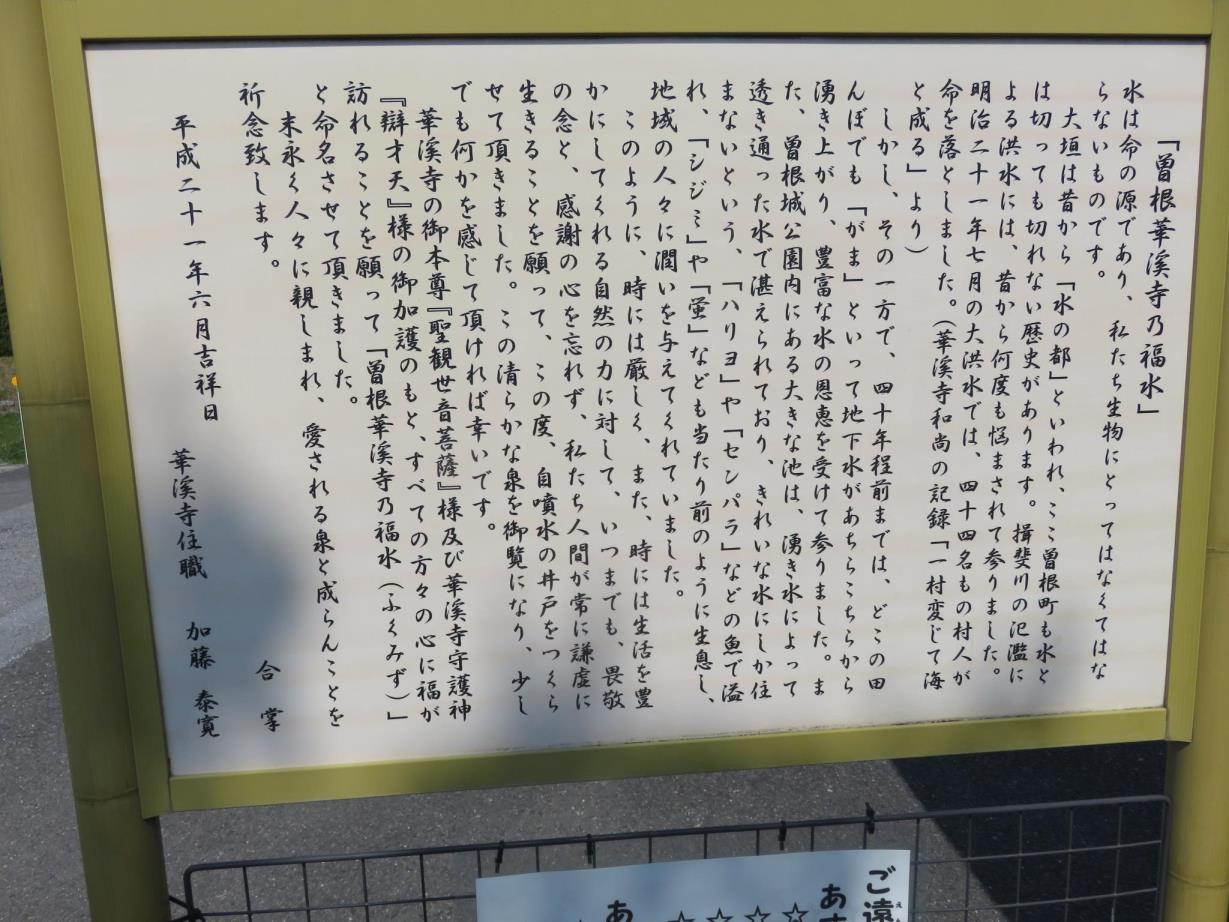 「曽根華溪寺乃福水」
水は命の源であり、私たち生物にとってはなくてはな
らないものです。
大垣は昔から「水の都」といわれ、ここ曽根町も水と
は切っても切れない歴史があります。揖斐川の氾濫に
よる洪水には、昔から何度も悩まされて参りました。
明治二十一年七月の大洪水では、四十四名もの村人が
命を落としました。（華溪寺和尚の記録「一村変じて海
と成る」より）
しかし、その一方で、四十年程前までは、どこの田
んぼでも「がま」といって地下水があちらこちらから
湧き上がり、豊富な水の恩恵を受けて参りました。ま
た、曽根城公園内にある大きな池は、湧き水によって
透き通った水で湛えられており、きれいな水にしか住
まないという、「ハリヨ」や「センパラ」などの魚で溢
れ、「シジミ」や「蛍」なども当たり前のように生息し、
地域の人々に潤いを与えてくれていました。
このように、時には厳しく、また、時には生活を豊
かにしてくれる自然の力に対して、いつまでも、畏敬
の念と、感謝の心を忘れず、私たち人間が常に謙虚に
生きることを願って、この度、自噴水の井戸をつくら
せて頂きました。この清らかな泉を御覧になり、少し
でも何かを感じて頂ければ幸いです。
華溪寺の御本尊『聖観世音菩薩』様及び華溪寺守護神
『辯才天』様の御加護のもと、すべての方々の心に福が
訪れることを願って「曽根華溪寺乃福水（ふくみず）」
と命名させて頂きました。
末永く人々に親しまれ、愛される泉と成らんことを
祈念致します。
合掌
平成二十一年六月吉祥日
華溪寺住職 加藤 泰寛
ご遠
あ
☆☆☆☆
あ